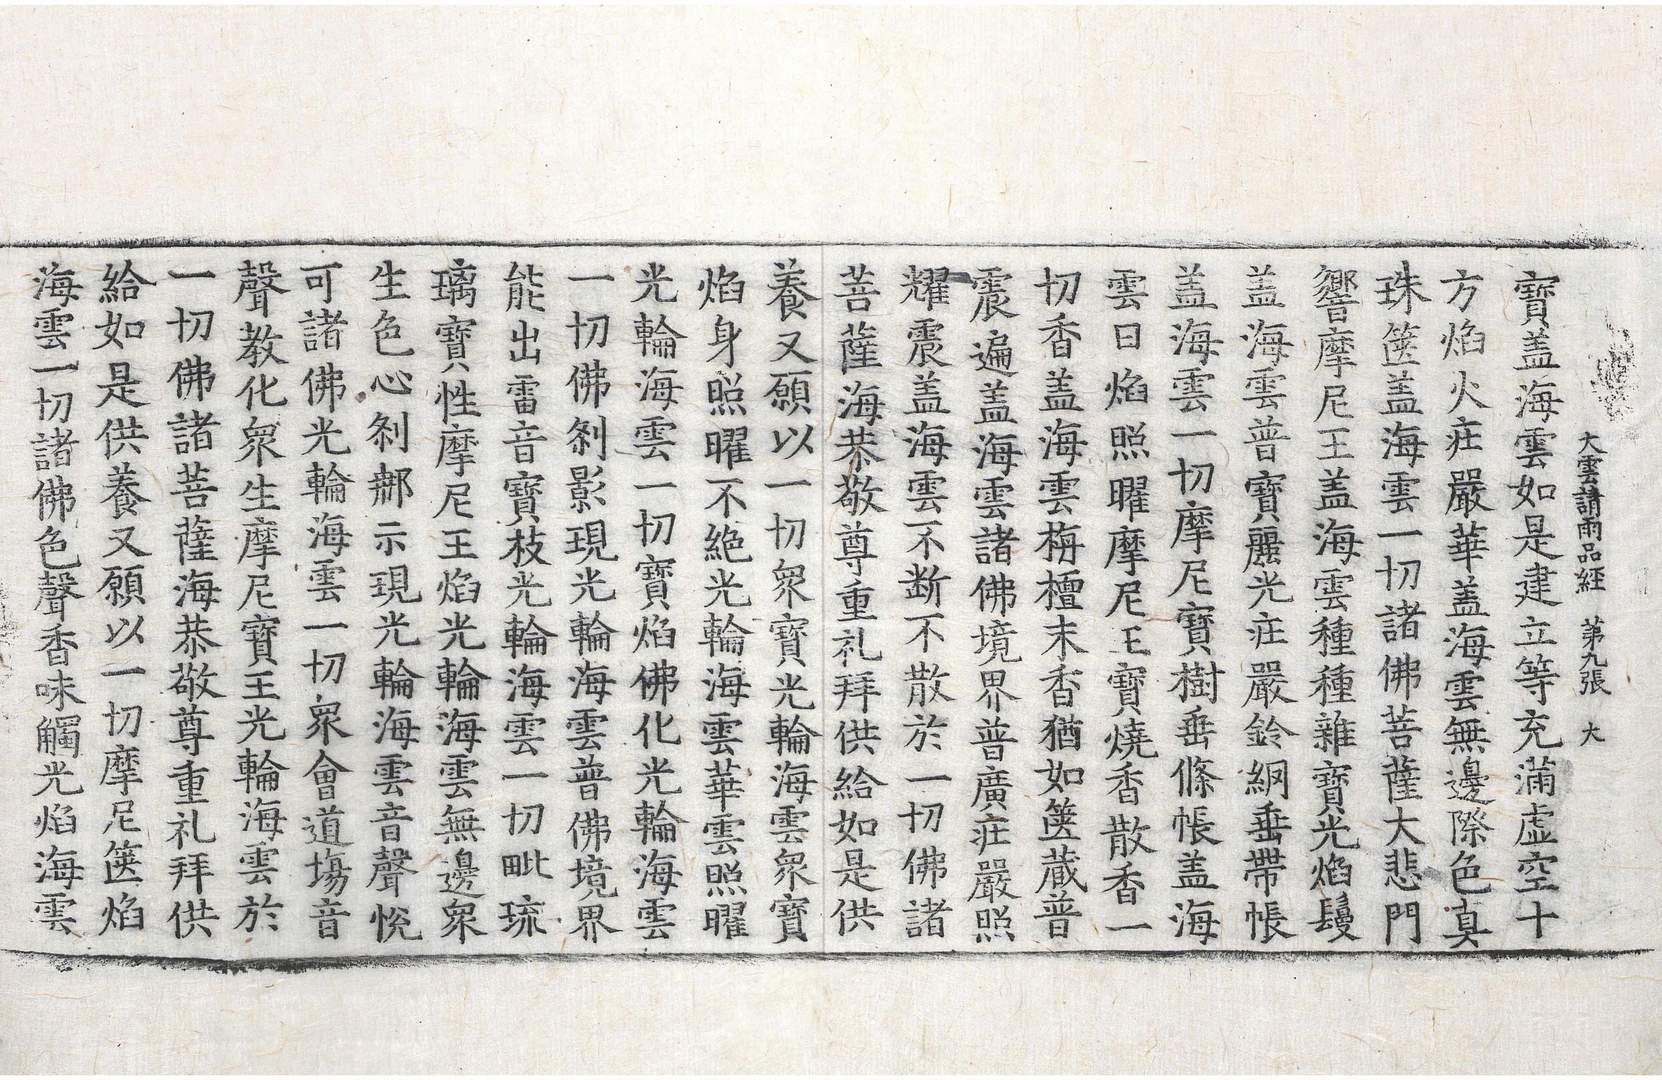 大雲請雨品經 第九張 大
寶盖海雲如是建立等充滿虛空十
方焰火庄嚴華盖海雲無邊際色真
珠篋盖海雲一切諸佛菩薩大悲門
響摩尼王盖海雲種種雜寶光焰鬘
盖海雲普寶麗光庄嚴鈴網垂帶帳
盖海雲一切摩尼寶樹垂條帳盖海
雲日焰照曜摩尼王寶燒香散香一
切香盖海雲栴檀末香猶如篋蔵普
震遍盖海雲諸佛境界普廣庄嚴照
耀震盖海雲不断不散於一切佛諸
菩薩海恭敬尊重礼拜供給如是供
養又願以一切衆寶光輪海雲衆寶
焰身照曜不絶光輪海雲華雲照曜
光輪海雲一切寶焰佛化光輪海雲
一切佛剎影現光輪海雲普佛境界
能出雷音寶枝光輪海雲一切毗琉
璃寶性摩尼王焰光輪海雲無邊衆
生色心剎㪷示現光輪海雲音聲悅
可諸佛光輪海雲一切衆會道場音
聲教化衆生摩尼寶王光輪海雲於
一切佛諸菩薩海恭敬尊重礼拜供
給如是供養又願以一切摩尼篋焰
海雲一切諸佛色聲香味觸光焰海雲